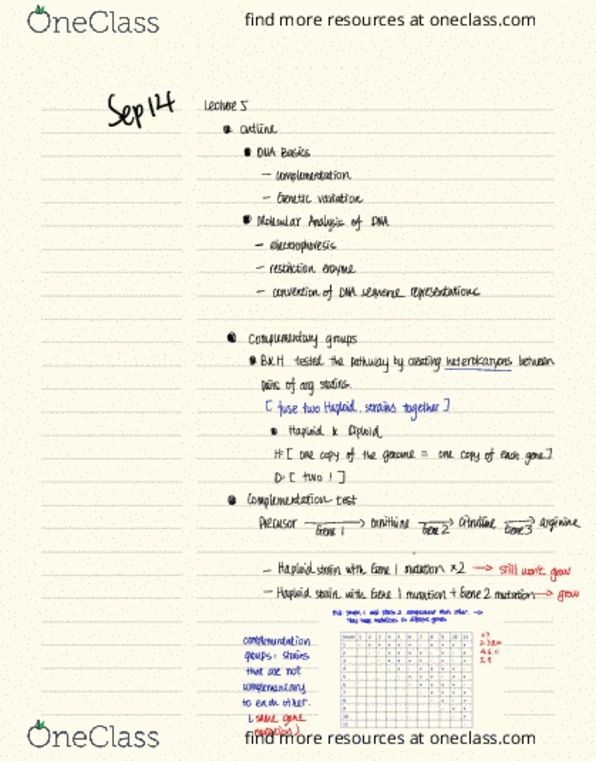 OneClass
find more resources at oneclass.com
Sep 14
Lecture 5
outline
DNA Basics
— complementation
— Genetic variation
Molecular Analysis of DNA
— electrophoresis
— restriction enzyme
— convention of DNA sequence representations
Complementary groups
B&H tested the pathway by creating heterokaryons between
pairs of arg strains.
[ fuse two Haploid. strains together ]
Haploid & Diploid
H: [ one copy of the genome = one copy of each gene ]
D: [ two ! ]
Complementation test
Precusor → ornithine → citrulline → arginine
Gene 1 Gene 2 Gene 3
— Haploid strain with Gene 1 mutation x2 → still won't grow
— Haploid strain with Gene 1 mutation + Gene 2 mutation → grow
they have mutations in different genes
complementation
groups: strains
that are not
complementary
to each other.
( same gene
mutation )
OneClass
find more resources at oneclass.com